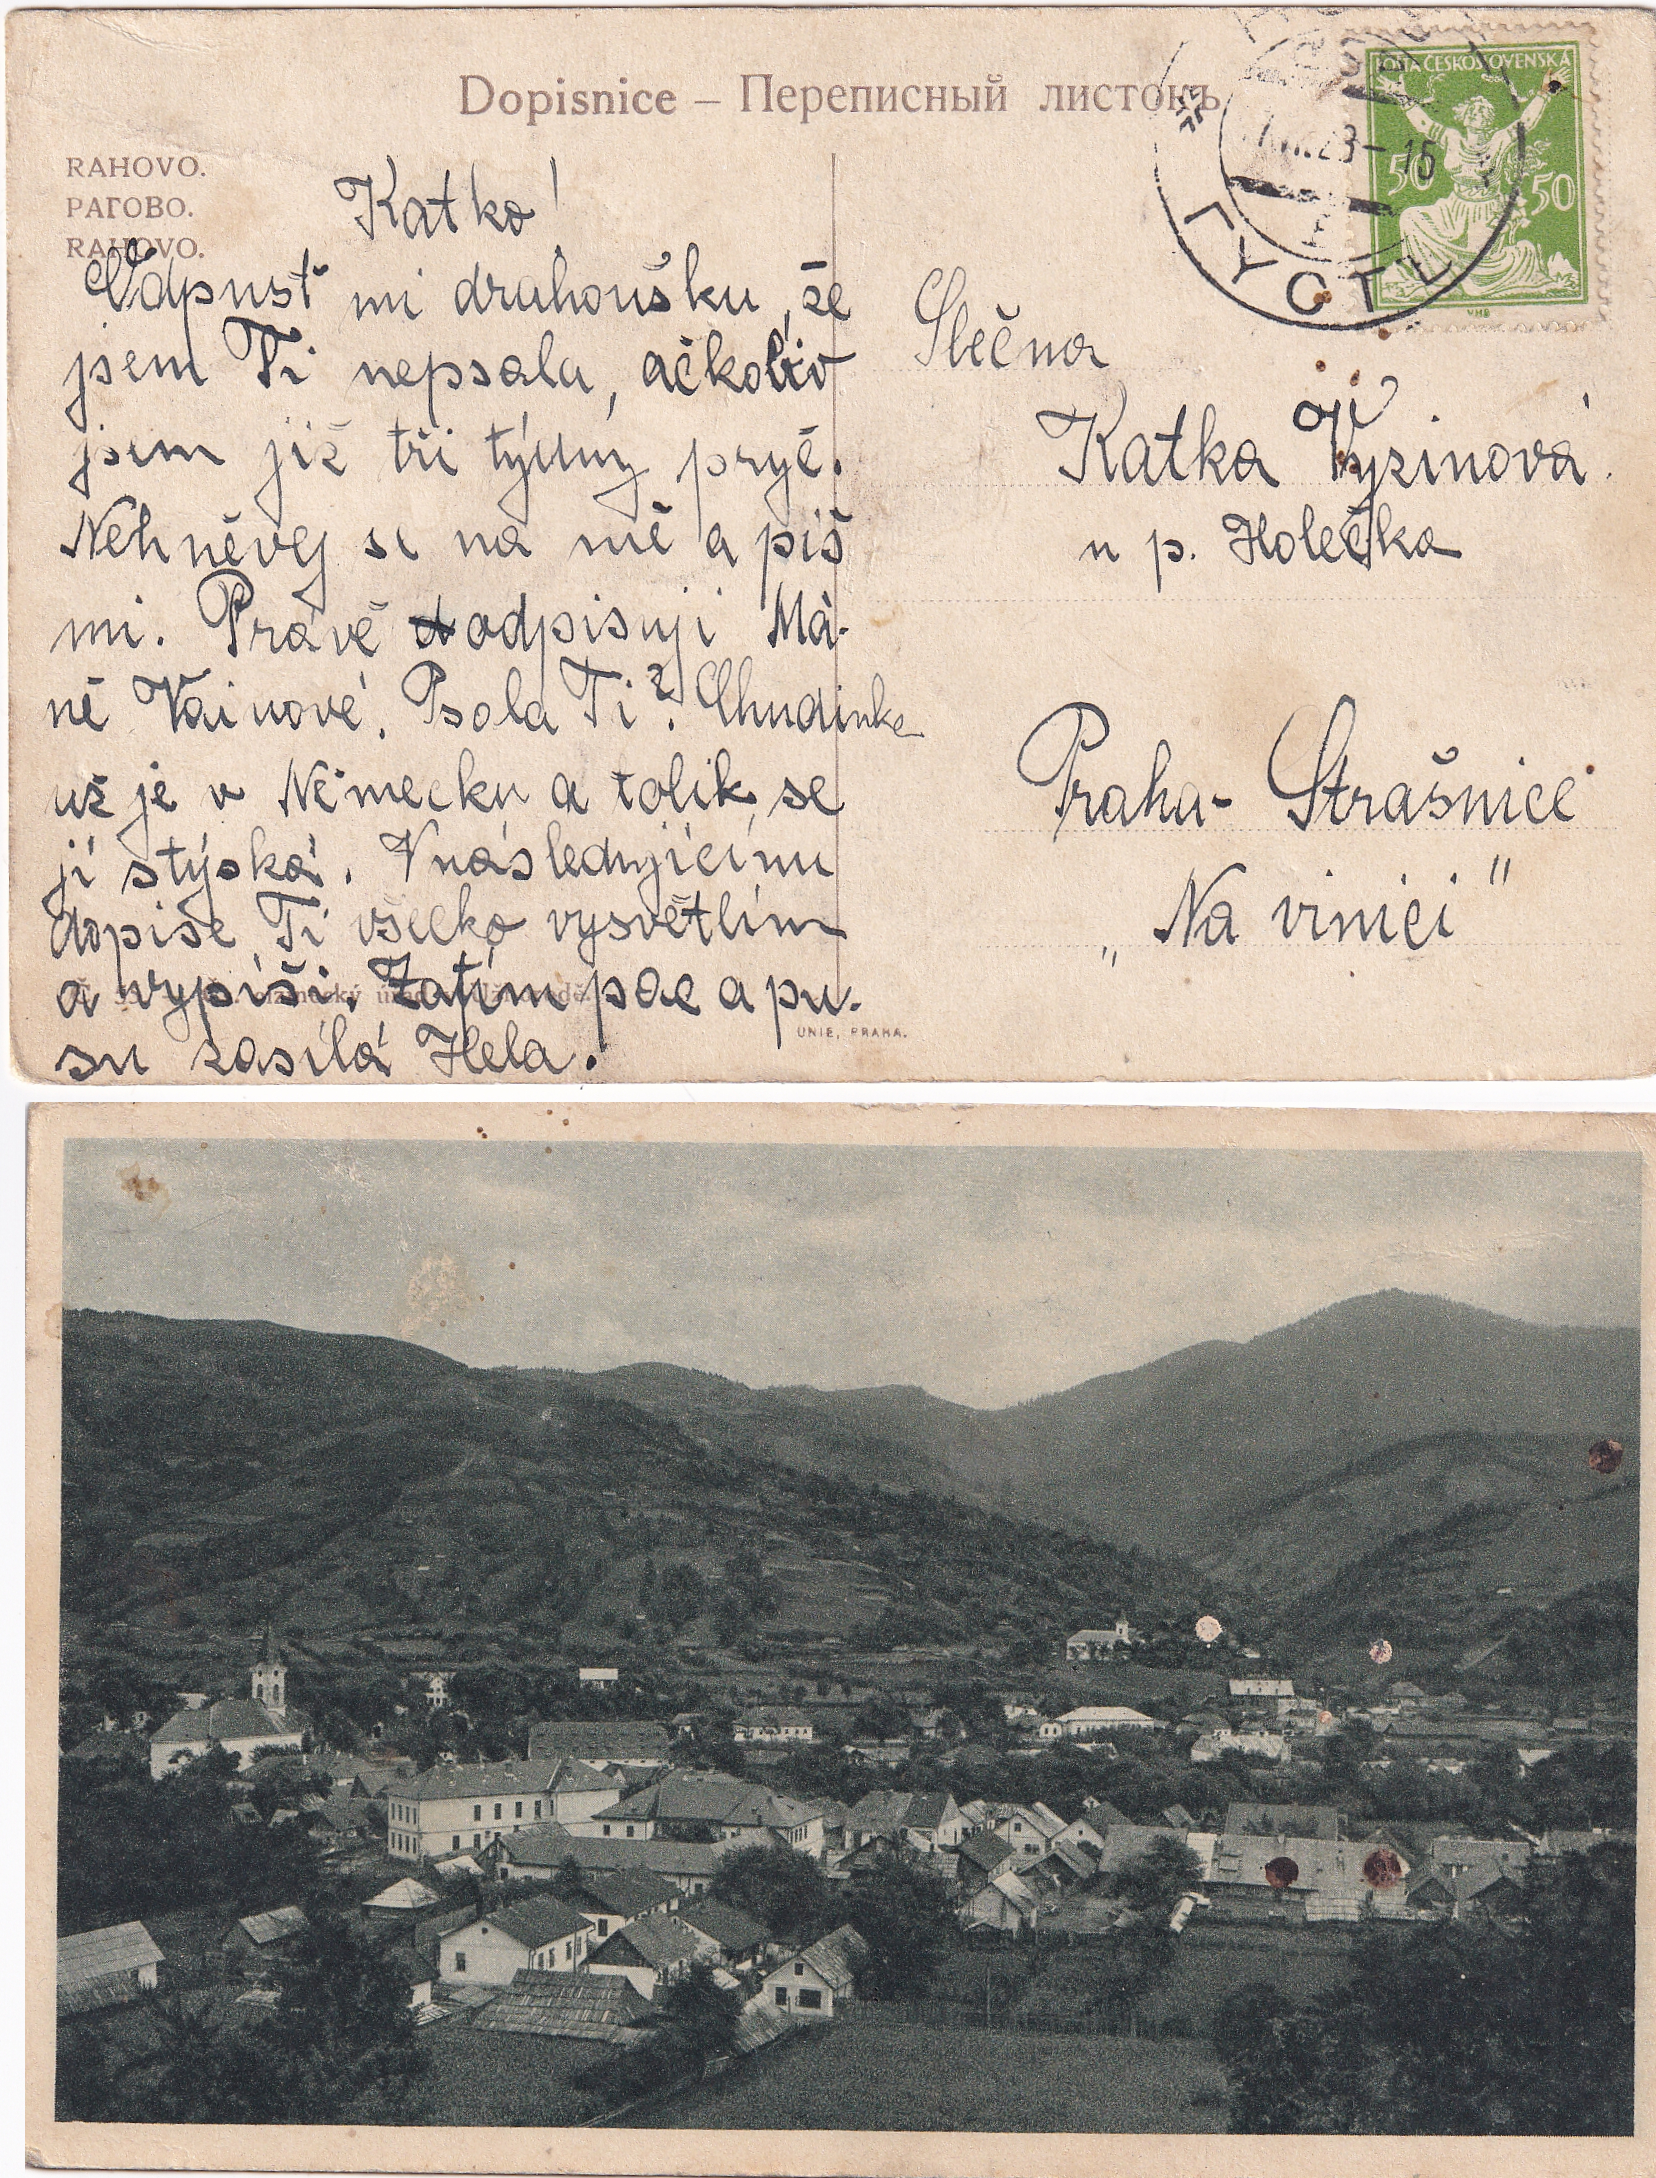 Dopisnice – Переписный листокъ
RAHOVO.
РАГОВО.
RAHOVO.
POŠTA ČESKOSLOVENSKÁ
50 50
VHB
23-15
ГУСТЬ
Katko!
Odpusť mi drahoušku, že
jsem Ti nepsala, ačkoliv
jsem již tři týdny pryč.
Nehněvej se na mě a piš
mi. Právě odpisuji Má-
ně Vainové. Psala Ti? Chudinka
už je v Německu a tolik se
jí stýská. V následujícímu
dopise Ti všecko vysvětlím
a vypíši. Zatím pac a pu-
su zasílá Hela.
Slečna
Katka Vyzinová
u p. Holečka
Praha- Strašnice
„Na vinici"
UNIE, PRAHA.